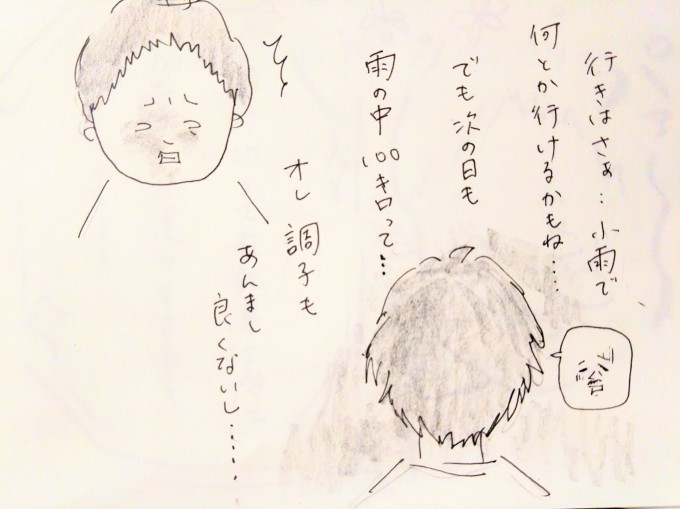 行きはさぁ…小雨で
何とか行けるかもね……
でも次の日も
雨の中100キロって…
オレ調子も
あんまし
良くないし……